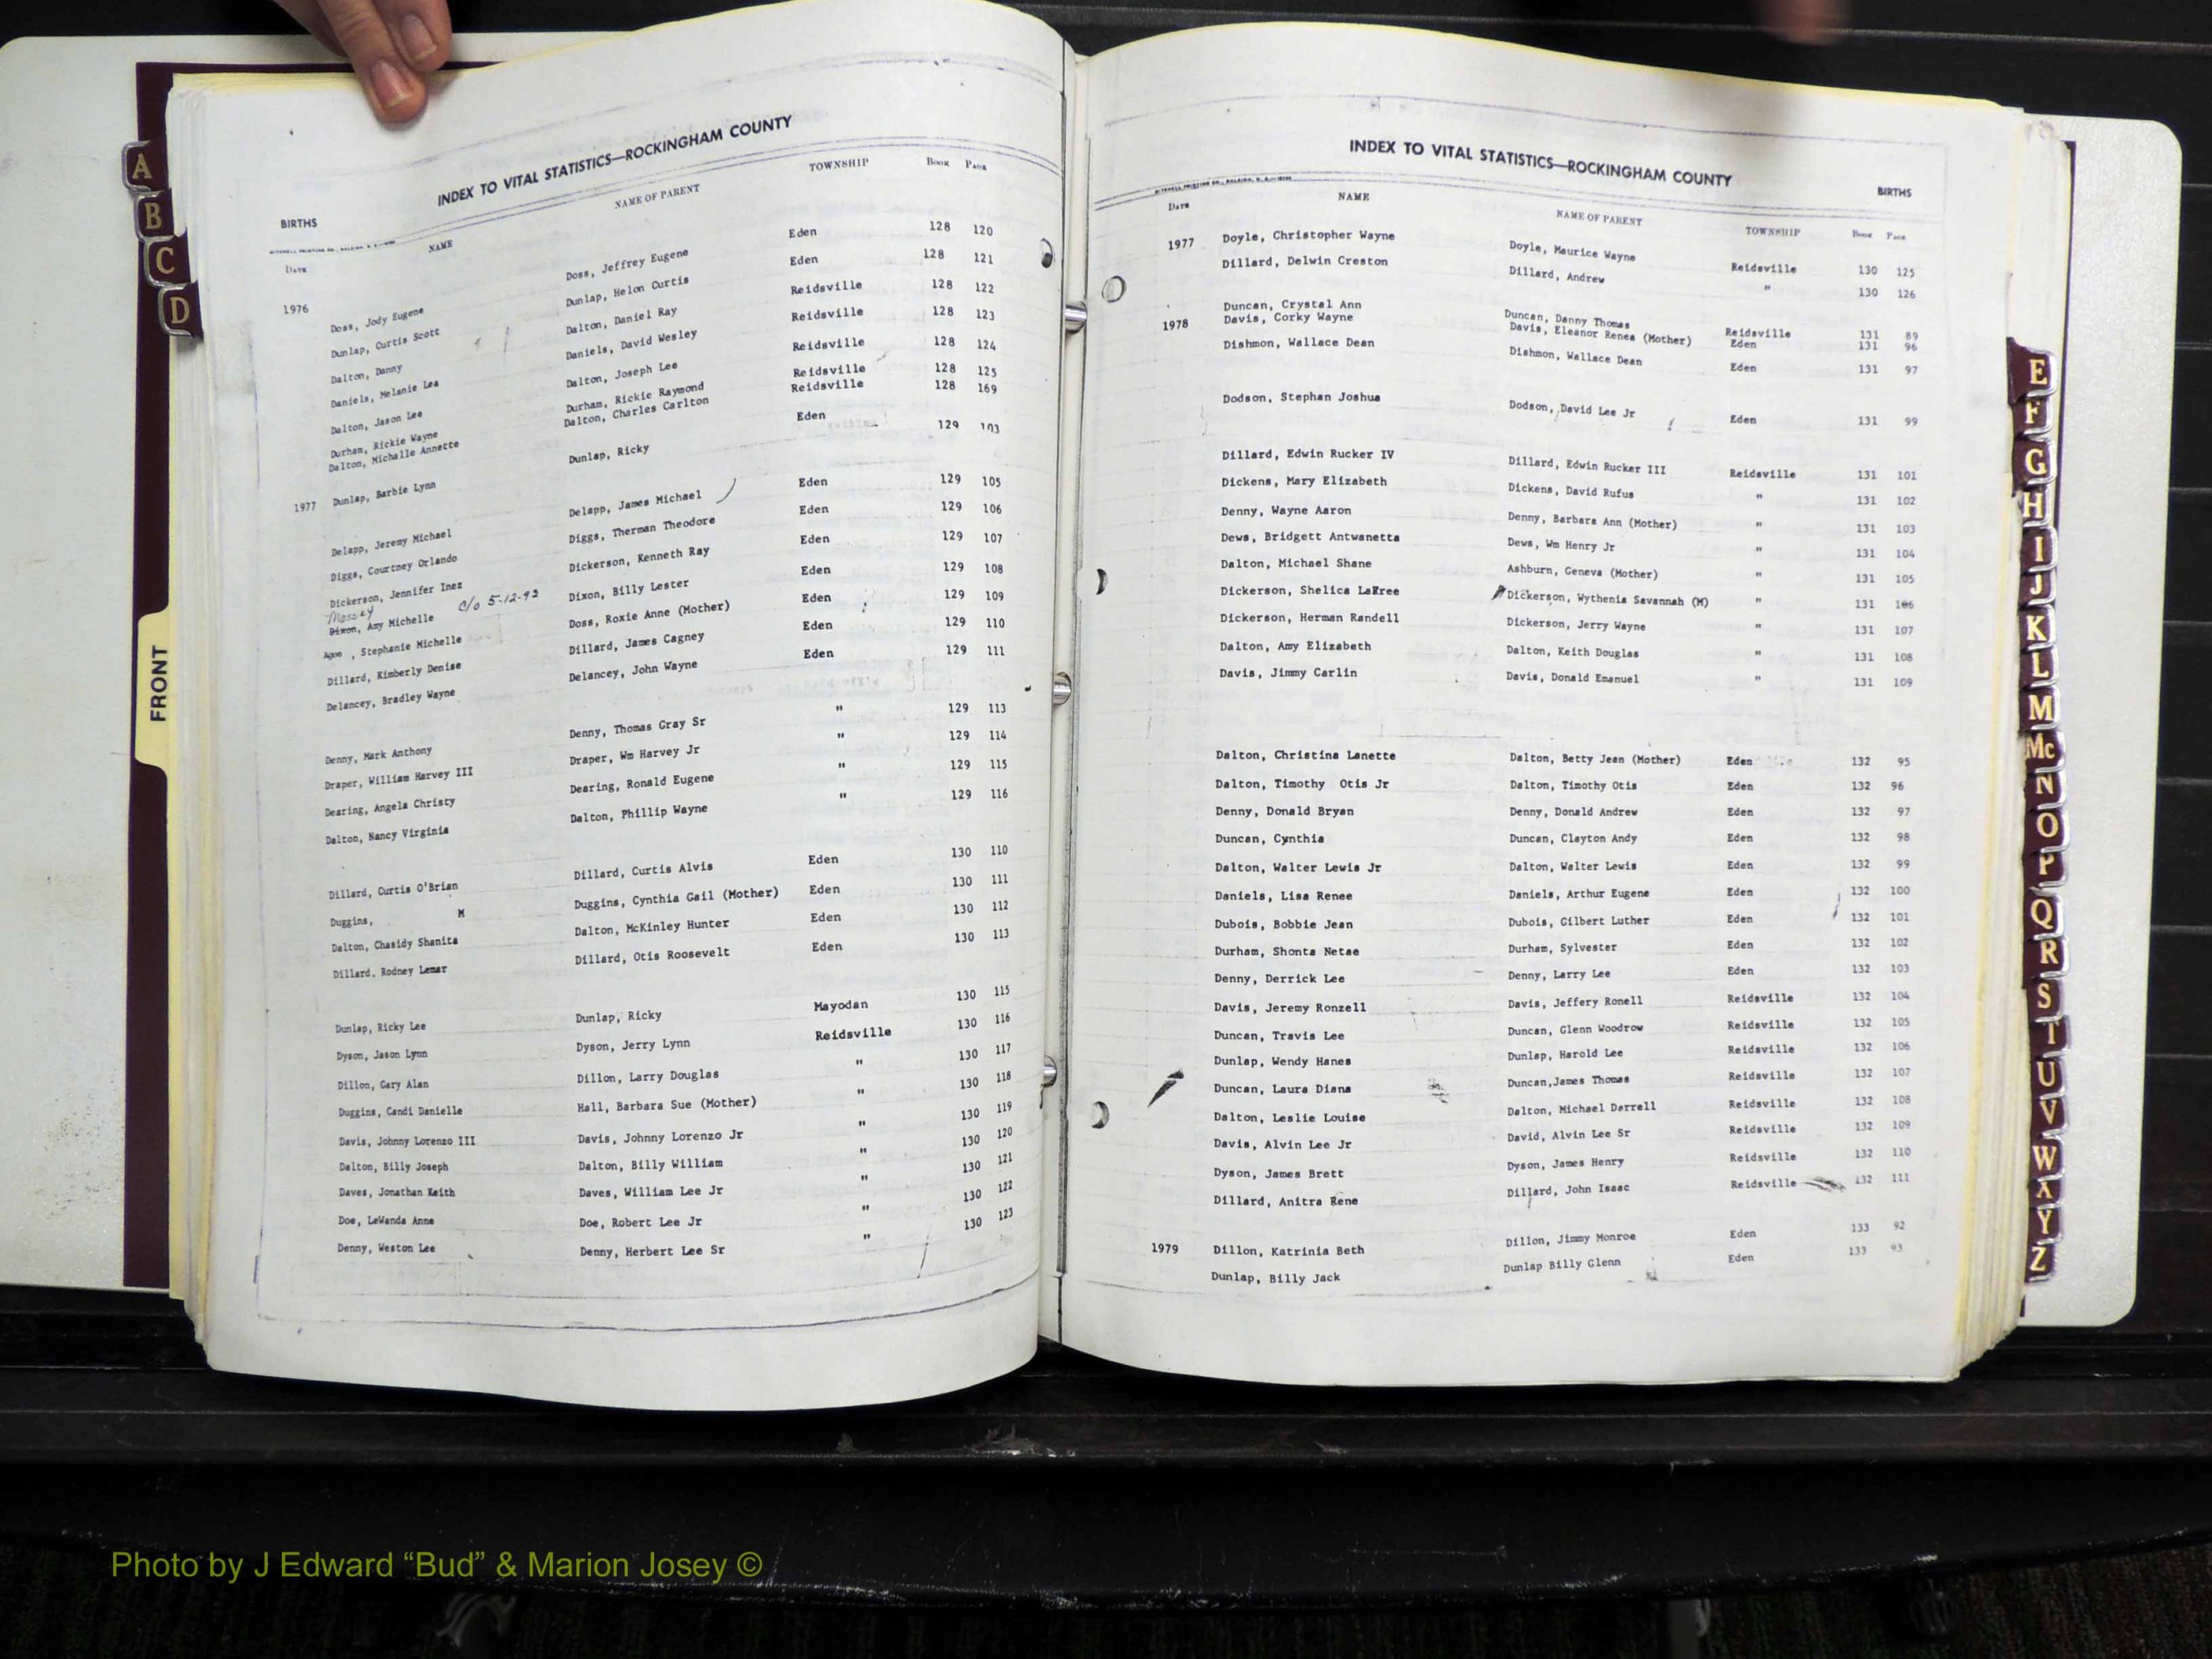 A
B
C
D
FRONT
INDEX TO VITAL STATISTICS—ROCKINGHAM COUNTY
BIRTHS
DATE NAME NAME OF PARENT TOWNSHIP BOOK PAGE
1976 Doss, Jody Eugene Doss, Jeffrey Eugene Eden 128 120
Dunlap, Curtis Scott Dunlap, Helon Curtis Eden 128 121
Dalton, Danny Dalton, Daniel Ray Reidsville 128 122
Daniels, Melanie Lea Daniels, David Wesley Reidsville 128 123
Dalton, Jason Lee Dalton, Joseph Lee Reidsville 128 124
Durham, Rickie Wayne Durham, Rickie Raymond Reidsville 128 125
Dalton, Michalle Annette Dalton, Charles Carlton Reidsville 128 169
1977 Dunlap, Barbie Lynn Dunlap, Ricky Eden 129 103
Delapp, Jeremy Michael Delapp, James Michael Eden 129 105
Diggs, Courtney Orlando Diggs, Therman Theodore Eden 129 106
Dickerson, Jennifer Inez Dickerson, Kenneth Ray Eden 129 107
Massey c/o 5-12-93
Dixon, Amy Michelle Dixon, Billy Lester Eden 129 108
Agee , Stephanie Michelle Doss, Roxie Anne (Mother) Eden 129 109
Dillard, Kimberly Denise Dillard, James Cagney Eden 129 110
Delancey, Bradley Wayne Delancey, John Wayne Eden 129 111
Denny, Mark Anthony Denny, Thomas Gray Sr " 129 113
Draper, William Harvey III Draper, Wm Harvey Jr " 129 114
Dearing, Angela Christy Dearing, Ronald Eugene " 129 115
Dalton, Nancy Virginia Dalton, Phillip Wayne " 129 116
Dillard, Curtis O'Brian Dillard, Curtis Alvis Eden 130 110
Duggins, M Duggins, Cynthia Gail (Mother) Eden 130 111
Dalton, Chasidy Shanita Dalton, McKinley Hunter Eden 130 112
Dillard. Rodney Lemar Dillard, Otis Roosevelt Eden 130 113
Dunlap, Ricky Lee Dunlap, Ricky Mayodan 130 115
Dyson, Jason Lynn Dyson, Jerry Lynn Reidsville 130 116
Dillon, Gary Alan Dillon, Larry Douglas " 130 117
Duggins, Candi Danielle Hall, Barbara Sue (Mother) " 130 118
Davis, Johnny Lorenzo III Davis, Johnny Lorenzo Jr " 130 119
Dalton, Billy Joseph Dalton, Billy William " 130 120
Daves, Jonathan Keith Daves, William Lee Jr " 130 121
Doe, LeWanda Anne Doe, Robert Lee Jr " 130 122
Denny, Weston Lee Denny, Herbert Lee Sr " 130 123
INDEX TO VITAL STATISTICS—ROCKINGHAM COUNTY
BIRTHS
DATE NAME NAME OF PARENT TOWNSHIP BOOK PAGE
1977 Doyle, Christopher Wayne Doyle, Maurice Wayne Reidsville 130 125
Dillard, Delwin Creston Dillard, Andrew " 130 126
Duncan, Crystal Ann Duncan, Danny Thomas Reidsville 131 89
1978 Davis, Corky Wayne Davis, Eleanor Renea (Mother) Eden 131 96
Dishmon, Wallace Dean Dishmon, Wallace Dean Eden 131 97
Dodson, Stephan Joshua Dodson, David Lee Jr Eden 131 99
Dillard, Edwin Rucker IV Dillard, Edwin Rucker III Reidsville 131 101
Dickens, Mary Elizabeth Dickens, David Rufus " 131 102
Denny, Wayne Aaron Denny, Barbara Ann (Mother) " 131 103
Dews, Bridgett Antwanetta Dews, Wm Henry Jr " 131 104
Dalton, Michael Shane Ashburn, Geneva (Mother) " 131 105
Dickerson, Shelica LaKree Dickerson, Wythenia Savannah (M) " 131 106
Dickerson, Herman Randell Dickerson, Jerry Wayne " 131 107
Dalton, Amy Elizabeth Dalton, Keith Douglas " 131 108
Davis, Jimmy Carlin Davis, Donald Emanuel " 131 109
Dalton, Christina Lanette Dalton, Betty Jean (Mother) Eden 132 95
Dalton, Timothy Otis Jr Dalton, Timothy Otis Eden 132 96
Denny, Donald Bryan Denny, Donald Andrew Eden 132 97
Duncan, Cynthia Duncan, Clayton Andy Eden 132 98
Dalton, Walter Lewis Jr Dalton, Walter Lewis Eden 132 99
Daniels, Lisa Renee Daniels, Arthur Eugene Eden 132 100
Dubois, Bobbie Jean Dubois, Gilbert Luther Eden 132 101
Durham, Shonta Netae Durham, Sylvester Eden 132 102
Denny, Derrick Lee Denny, Larry Lee Eden 132 103
Davis, Jeremy Ronzell Davis, Jeffery Ronell Reidsville 132 104
Duncan, Travis Lee Duncan, Glenn Woodrow Reidsville 132 105
Dunlap, Wendy Hanes Dunlap, Harold Lee Reidsville 132 106
Duncan, Laura Diana Duncan,James Thomas Reidsville 132 107
Dalton, Leslie Louise Dalton, Michael Darrell Reidsville 132 108
Davis, Alvin Lee Jr David, Alvin Lee Sr Reidsville 132 109
Dyson, James Brett Dyson, James Henry Reidsville 132 110
Dillard, Anitra Rene Dillard, John Isaac Reidsville 132 111
1979 Dillon, Katrinia Beth Dillon, Jimmy Monroe Eden 133 92
Dunlap, Billy Jack Dunlap Billy Glenn Eden 133 93
E
F
G
H
I
J
K
L
M
Mc
N
O
P
Q
R
S
T
U
V
W
X
Y
Z
Photo by J Edward “Bud” & Marion Josey ©